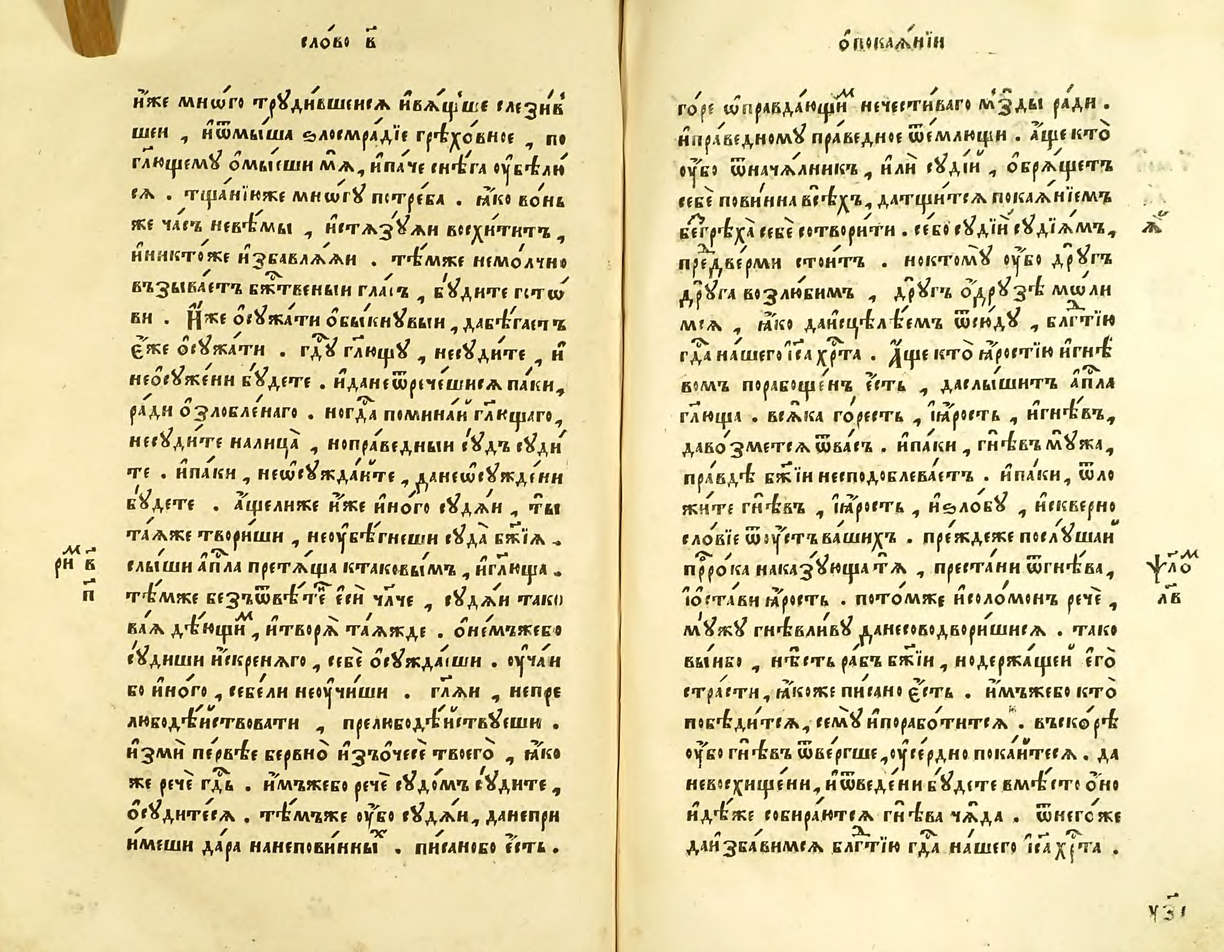 сло́во в҃
и҆́же мнѡ́го трꙋди́вшеисѧ и҆вѧ́щьше слези́в
шеи , и҆ѿмы́ша ѕлосмра́дїе грѣхо́вное , по
гл҃ющемꙋ ѡ҆мы́еши мѧ̀ , и҆па́че снѣ́га оу҆бѣлю́
сѧ . тща́нїиже мно́гꙋ потре́ба . ꙗ҆́ко во́нь
же ча́съ невѣ́мы , и҆стѧзꙋ́ѧи восхи́титъ ,
и҆никто́же и҆збавлѧ́ѧи . тѣ́мже немо́лчно
възыва́етъ бж҃твеныи гла́съ , бꙋ́дите гото́
ви . И҆́же ѡ҆сꙋжа́ти ѡ҆бы́кнꙋвыи , дабѣ́гаетъ
є҆́же ѡ҆сꙋжа́ти . гд҃ꙋ гл҃ющꙋ , несꙋди́те , и҆
неѡ҆сꙋже́ни бꙋ́дете . и҆данеѿрече́шисѧ па́ки ,
ра́ди ѡ҆зло́бленаго . ногда̀ помина́й гл҃ющаго ,
несꙋди́те налица̀ , нопра́ведныи сꙋ́дъ сꙋди́
те . и҆па́ки , неѡсꙋжда́йте , данеѡсꙋжде́ни
бꙋ́дете . а҆́щелиже и҆́же и҆но́го сꙋдѧ́и , ты́
та́ѧже твори́ши , неоу҆бѣ́гнеши сꙋда̀ бж҃їѧ .
слы́ши а҆пл҃а претѧ́ща ктаковы́мъ , и҆гл҃юща .
тѣ́мже безъѿвѣ́те є҆сѝ чл҃че , сꙋдѧ́и тако
ваѧ дѣ́ющим , и҆творѧ̀ та́ѧжде . ѡ҆не́мъжебо
сꙋ́диши и҆́скренѧго , себѐ ѡ҆сꙋжда́еши . оу҆ча́и
бо и҆но́го , себе́ли неоу҆чи́ши . гл҃ѧи , непре
любодѣ́йствовати , прелюбодѣ́йствꙋеши .
и҆змѝ пе́рвѣе бервно̀ и҆зъѡ҆чесѐ твоегѡ̀ , ꙗ҆́ко
же речѐ гд҃ь . и҆́мъжебо речѐ сꙋдо́мъ сꙋ́дите ,
ѡ҆сꙋ́дитесѧ . тѣ́мъже оу҆́бо сꙋдѧ́и , данепри
и҆́меши да́ра нанепови́нных . пи́санобо є҆́сть .
м
ри в҃
п҃
ѡ҆покаѧ́нїи
го́ре ѡ҆правда́ющим нечести́ваго мзды̀ ра́ди .
и҆пра́ведномꙋ пра́ведное ѿе́млющи . а҆́ще кто̀
оу҆́бо ѿнача́лникъ , и҆лѝ сꙋдїи , ѡ҆брѧ́щетъ
себѐ пови́нна всѣ́хъ , датщи́тсѧ покаѧ́нїемъ
безгрѣха̀ себѐ сотвори́ти . се́бо сꙋдїѝ сꙋдїѧ́мъ ,
предве́рми стои́тъ . нокто́мꙋ оу҆́бо дрꙋ́гъ
дрꙋ́га возлю́бимъ , дрꙋ́гъ ѡ҆дрꙋ́зѣ мо́ли
мсѧ , ꙗ҆́ко даисцѣлѣ́емъ ѿсю́дꙋ , блг҃тїю
гд҃а на́шего і҆с҃а хр҃та . А҆́ще кто̀ ꙗ҆́ростїю и҆гнѣ́
вомъ порабоще́нъ є҆́сть , даслы́шитъ а҆пл҃а
гл҃юща . всѧ́ка го́ресть , и҆ꙗ҆́рость , и҆гнѣ́въ ,
даво́зметсѧ ѿва́съ . и҆па́ки , гнѣ́въ мꙋ́жа ,
пра́вдѣ бж҃їи несподоблѧ́етъ . и҆па́ки , ѿло
жи́те гнѣ́въ , и҆ꙗ҆́рость , и҆ѕло́бꙋ , и҆скверно
сло́вїе ѿоу҆́стъ ва́шихъ . пре́ждеже послꙋ́шаи
прⷪ҇ро́ка наказꙋ́юща тѧ̀ , преста́ни ѿгнѣ́ва ,
и҆ѡ҆ста́ви ꙗ҆́рость . пото́мже и҆соломо́нъ речѐ ,
мꙋ́жꙋ гнѣвли́вꙋ данесоводвори́шисѧ . тако
вы́ибо , нѣ́сть ра́бъ бж҃їи , нодержа́щей е҆го̀
стра́сти , ꙗ҆́коже пи́сано є҆́сть . и҆́мъжебо кто̀
побѣди́тсѧ , семꙋ̀ и҆порабо́титсѧ . въско́рѣ
оу҆́бо гнѣ́въ ѿве́ргше , оу҆се́рдно пока́йтесѧ . да
невосхище́ни , и҆ѿведе́ни бꙋ́дете вмѣ́сто ѡ҆́но
и҆дѣ́же собира́ютсѧ гнѣ́ва чѧ̀да . ѿнего́же
даи҆зба́вимсѧ блг҃тїю гд҃а на́шего і҆с҃а хр҃та .
л҃
ѱ҃лом
лв҃